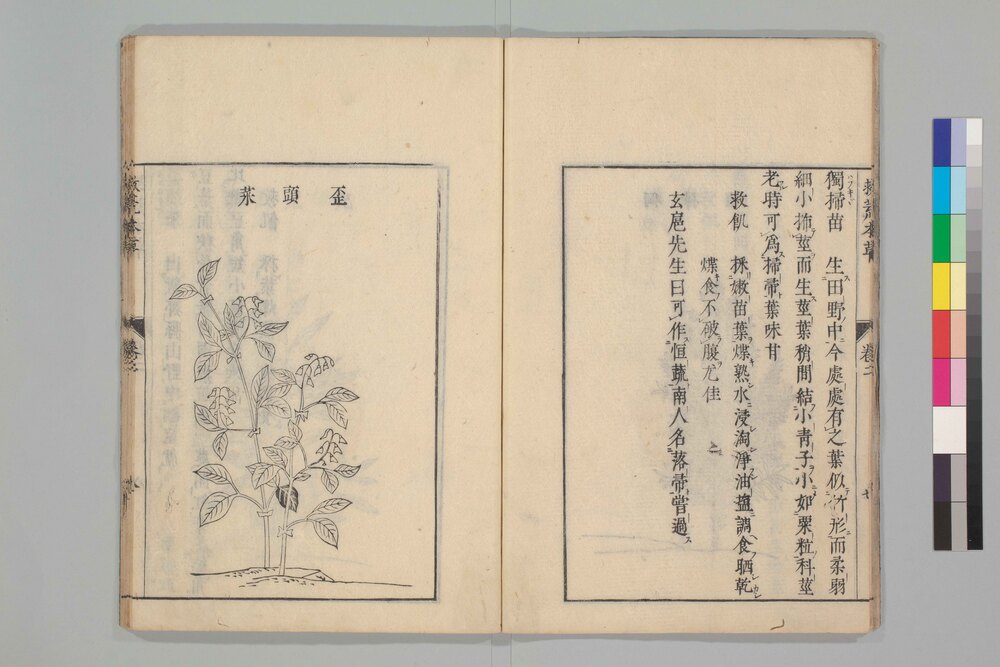 救荒本草
卷之二
獨掃苗 生田野中今處處有之葉似竹形而柔弱
細小抪莖而生莖葉稍間結小青子小如粟粒科莖
老時可爲掃帚葉味甘
救飢 採嫩苗葉煠熟水浸淘淨油鹽調食晒乾
煠食不破腹尤佳
玄扈先生曰可作恒蔬南人名落帚嘗過
歪頭菜
救荒本草
卷之